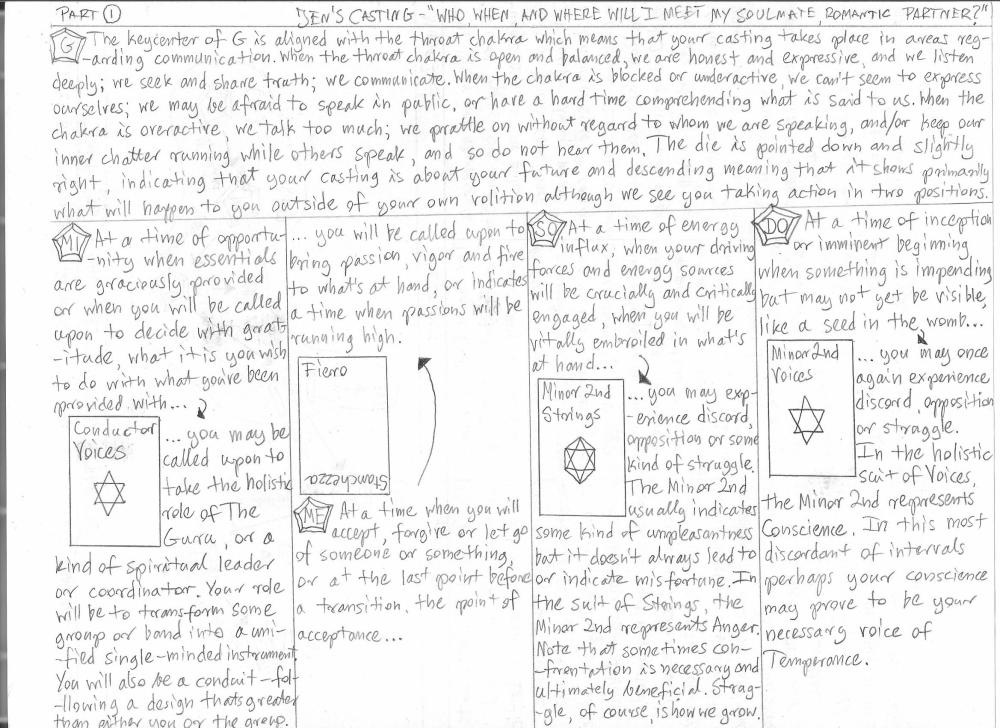 PART 1
JEN'S CASTING - "WHO, WHEN, AND WHERE WILL I MEET MY SOULMATE, ROMANTIC PARTNER?"
G
The keycenter of G is aligned with the throat chakra which means that your casting takes place in areas reg-
-arding communication. When the throat chakra is open and balanced, we are honest and expressive, and we listen
deeply; we seek and share truth; we communicate. When the chakra is blocked or underactive, we can't seem to express
ourselves; we may be afraid to speak in public, or have a hard time comprehending what is said to us. When the
chakra is overactive, we talk too much; we prattle on without regard to whom we are speaking, and/or keep our
inner chatter running while others speak, and so do not hear them. The die is pointed down and slightly
right, indicating that your casting is about your future and descending meaning that it shows primarily
what will happen to you outside of your own volition although we see you taking action in two positions.
MI
At a time of opportu-
-nity when essentials
are graciously provided
or when you will be called
upon to decide with grat-
-itude, what it is you wish
to do with what you've been
provided with...
Conductor
Voices
... you may be
called upon to
take the holistic
role of The
Guru, or a
kind of spiritual leader
or coordinator. Your role
will be to trans-form some
group or band into a uni-
-fied single-minded instrument.
You will also be a conduit - fol-
-llowing a design thats greater
than either you or the group.
... you will be called upon to
bring passion, vigor and fire
to what's at hand, or indicates
a time when passions will be
running high.
Fiero
Stanchezza
ME
At a time when you will
accept, forgive or let go
of someone or something,
or at the last point before
a transition, the point of
acceptance...
SO
At a time of energy
influx, when your driving
forces and energy sources
will be crucially and critically
engaged, when you will be
vitally embroiled in what's
at hand...
Minor 2nd
Strings
... you may exp-
-erience discord,
opposition or some
kind of struggle.
The Minor 2nd
usually indicates
some kind of unpleasantness
but it doesn't always lead to
or indicate misfortune. In
the suit of Strings, the
Minor 2nd represents Anger.
Note that sometimes con-
-frontation is necessary and
ultimately beneficial. Strug-
-gle, of course, is how we grow.
DO
At a time of inception
or imminent beginning
when something is impending
but may not yet be visible,
like a seed in the womb...
Minor 2nd
Voices
... you may once
again experience
discord, opposition
or struggle.
In the holistic
suit of Voices,
the Minor 2nd represents
Conscience. In this most
discordant of intervals
perhaps your conscience
may prove to be your
necessary voice of
Temperance.